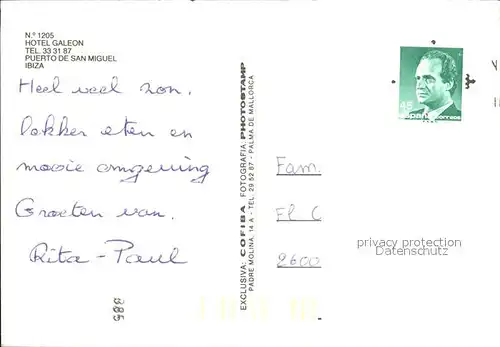 N.º 1205
HOTEL GALEON
TEL. 33 31 87
PUERTO DE SAN MIGUEL
IBIZA
Heel veel zon,
lekker eten en
mooie omgeving
Groeten van.
Rita - Paul
885
EXCLUSIVA: COFIBA FOTOGRAFIA: PHOTOSTAMP
PADRE MOLINA, 14 A - TEL. 29 52 87 - PALMA DE MALLORCA
45
España correos
Fam.
El C
2600
privacy protection
Datenschutz